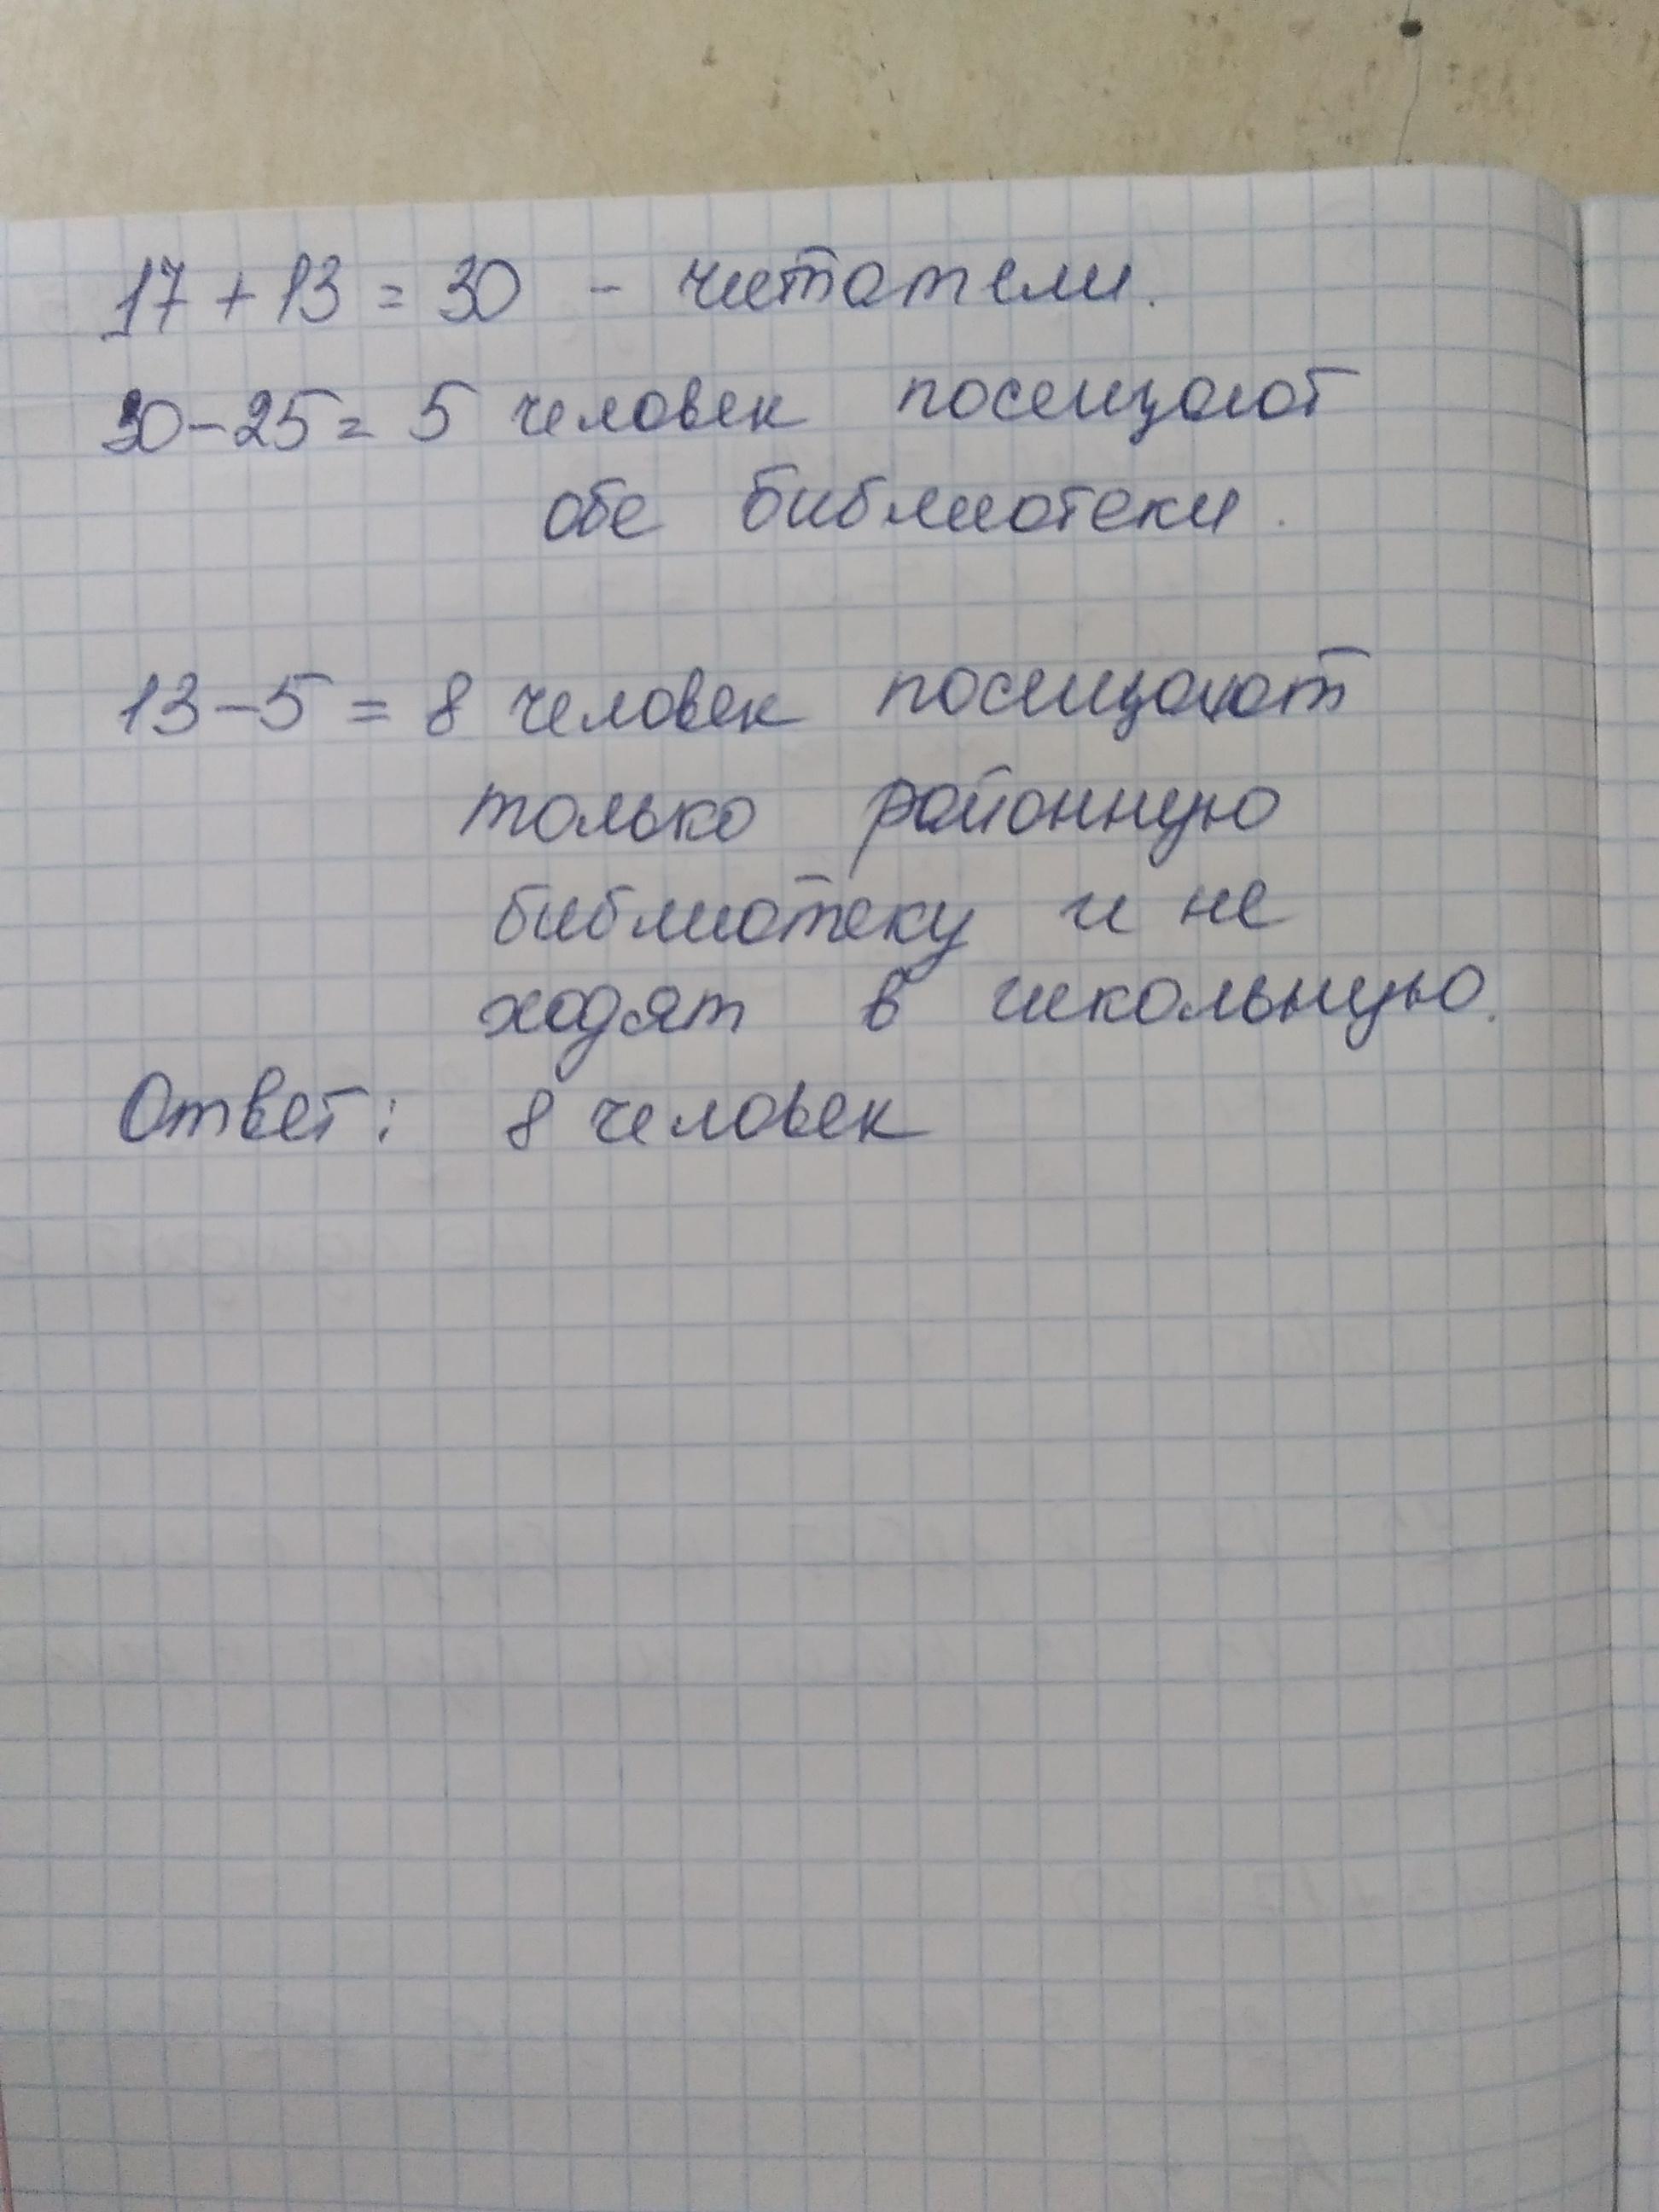 17 + 13 = 30 - читатели.
30-25= 5 человек посещают
обе библиотеки.
13-5 = 8 человек посещают
только районную
библиотеку и не
ходят в школьную.
Ответ: 8 человек